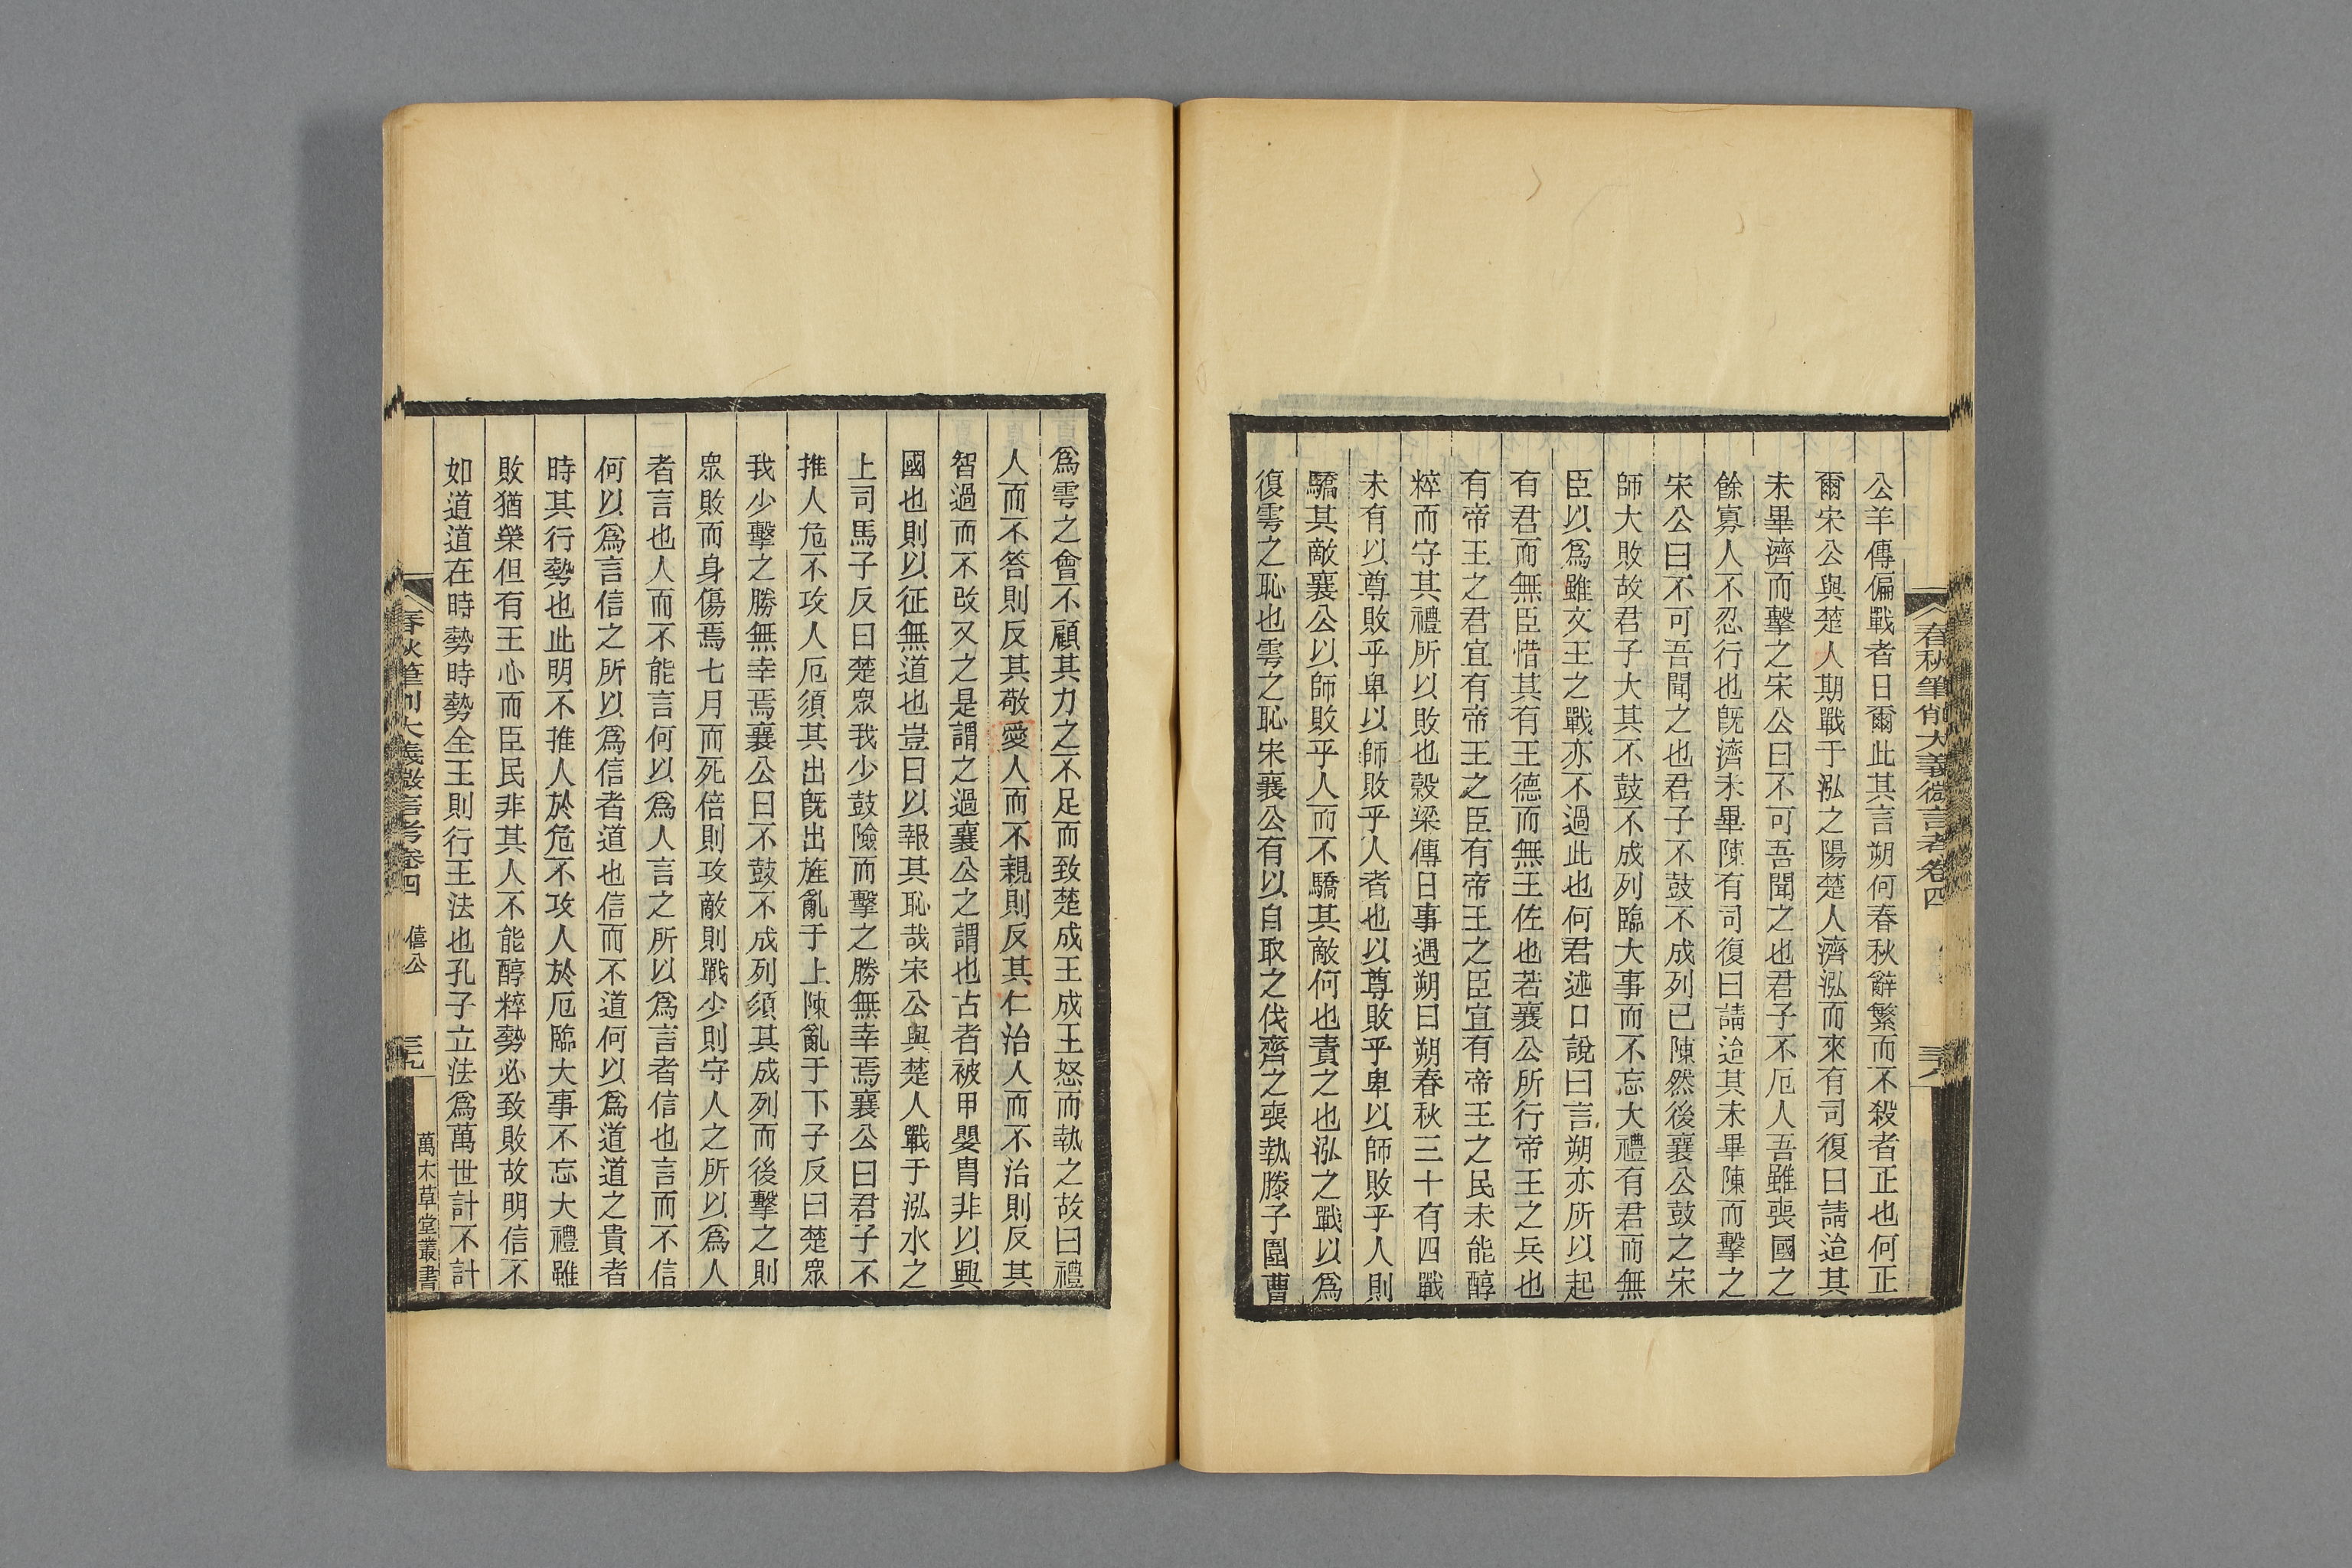 公羊傳偏戰者日爾此其言朔何春秋辭繁而不殺者正也何正
爾宋公與楚人期戰于泓之陽楚人濟泓而來有司復曰請迨其
未畢濟而擊之宋公曰不可吾聞之也君子不厄人吾雖喪國之
餘寡人不忍行也旣濟未畢陳有司復曰請迨其未畢陳而擊之
宋公曰不可吾聞之也君子不鼓不成列已陳然後襄公鼓之宋
師大敗故君子大其不鼓不成列臨大事而不忘大禮有君而無
臣以爲雖文王之戰亦不過此也何君述口說曰言朔亦所以起
有君而無臣惜其有王德而無王佐也若襄公所行帝王之兵也
有帝王之君宜有帝王之臣有帝王之臣宜有帝王之民未能醇
粹而守其禮所以敗也穀梁傳日事遇朔曰朔春秋三十有四戰
未有以尊敗乎卑以師敗乎人者也以尊敗乎卑以師敗乎人則
驕其敵襄公以師敗乎人而不驕其敵何也責之也泓之戰以爲
復雩之恥也雩之恥宋襄公有以自取之伐齊之喪執滕子圍曹
春秋筆削大義微言考卷四
三八
爲雩之會不顧其力之不足而致楚成王成王怒而執之故曰禮
人而不答則反其敬愛人而不親則反其仁治人而不治則反其
智過而不改又之是謂之過襄公之謂也古者被甲嬰冑非以興
國也則以征無道也豈曰以報其恥哉宋公與楚人戰于泓水之
上司馬子反曰楚眾我少鼓險而擊之勝無幸焉襄公曰君子不
推人危不攻人厄須其出旣出旌亂于上陳亂于下子反曰楚眾
我少擊之勝無幸焉襄公曰不鼓不成列須其成列而後擊之則
眾敗而身傷焉七月而死倍則攻敵則戰少則守人之所以爲人
者言也人而不能言何以爲人言之所以爲言者信也言而不信
何以爲言信之所以爲信者道也信而不道何以爲道道之貴者
時其行勢也此明不推人於危不攻人於厄臨大事不忘大禮雖
敗猶榮但有王心而臣民非其人不能醇粹勢必致敗故明信不
如道道在時勢時勢全王則行王法也孔子立法爲萬世計不計
春秋筆削大義微言考卷四 僖公 三九 萬木草堂叢書